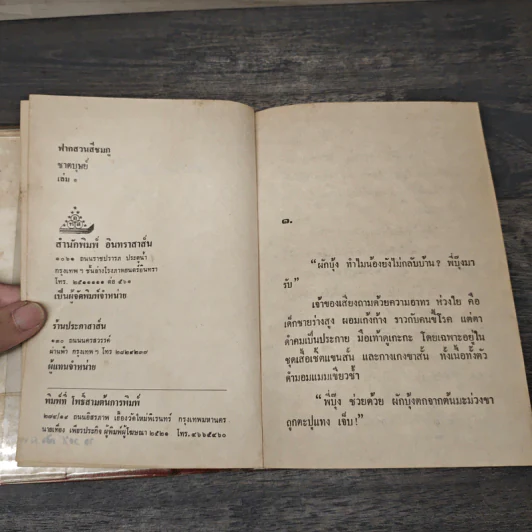 ฟากสวนสีชมภู
ชาตบุษย์
เล่ม ๑
สำนักพิมพ์ อินทราสาส์น
กรุงเทพฯ ชั้นล่างโรงภาพยนตร์อินทรา
เป็นผู้จัดพิมพ์จำหน่าย
ร้านประภาสาส์น
๑๓๐ ถนนดรสวรรค์
ผู้แทนจำหน่าย
พิมพ์ที่ โพธิ์สามต้นการพิมพ์
๒๘๔/๑๙ ถนนอิสรภาพ เยื้องวัดใหม่พิเรนทร์ กรุงเทพมหานคร
นายเที่ยง เพียรประกิจ ผู้พิมพ์ผู้โฆษณา ๒๕๒๑ โทร.๔๖๕๕๔๖๐
๑.
“ผักบุ้ง ทำไมน้องยังไม่กลับบ้าน ? พี่บุ๊งมา
รับ”
เจ้าของเสียงถามด้วยความอาทร ห่วงใย คือ
เด็กชายร่างสูง ผอมเก้งก้าง ราวกับคนขี้โรค แต่ตา
ดำคมเป็นประกาย มือเท้าดูเกะกะ โดยเฉพาะอยู่ใน
ชุดเสื้อเชิ้ตแขนสั้น และกางเกงขาสั้น ทั้งเนื้อทั้งตัว
ดำมอมแมมเขียวช้ำ
“พี่บุ๊ง ช่วยด้วย ผักบุ้งตกจากต้นมะม่วงขา
ถูกตะปูแทง เจ็บ !”